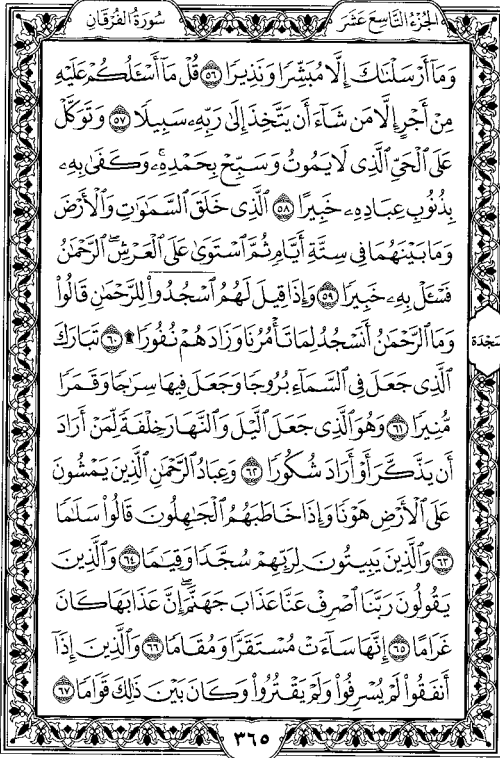 الجزء التاسع عشر
سورة الفرقان
وَمَآ أَرْسَلْنَٰكَ إِلَّا مُبَشِّرًا وَنَذِيرًا ٥٦ قُلْ مَآ أَسْـَٔلُكُمْ عَلَيْهِ
مِنْ أَجْرٍ إِلَّا مَن شَآءَ أَن يَتَّخِذَ إِلَىٰ رَبِّهِۦ سَبِيلًا ٥٧ وَتَوَكَّلْ
عَلَى ٱلْحَىِّ ٱلَّذِى لَا يَمُوتُ وَسَبِّحْ بِحَمْدِهِۦ ۚ وَكَفَىٰ بِهِۦ
بِذُنُوبِ عِبَادِهِۦ خَبِيرًا ٥٨ ٱلَّذِى خَلَقَ ٱلسَّمَٰوَٰتِ وَٱلْأَرْضَ
وَمَا بَيْنَهُمَا فِى سِتَّةِ أَيَّامٍ ثُمَّ ٱسْتَوَىٰ عَلَى ٱلْعَرْشِ ۚ ٱلرَّحْمَٰنُ
فَسْـَٔلْ بِهِۦ خَبِيرًا ٥٩ وَإِذَا قِيلَ لَهُمُ ٱسْجُدُوا۟ لِلرَّحْمَٰنِ قَالُوا۟
وَمَا ٱلرَّحْمَٰنُ أَنَسْجُدُ لِمَا تَأْمُرُنَا وَزَادَهُمْ نُفُورًا ۩ ٦٠ تَبَارَكَ
سجدة
ٱلَّذِى جَعَلَ فِى ٱلسَّمَآءِ بُرُوجًا وَجَعَلَ فِيهَا سِرَٰجًا وَقَمَرًا
مُّنِيرًا ٦١ وَهُوَ ٱلَّذِى جَعَلَ ٱلَّيْلَ وَٱلنَّهَارَ خِلْفَةً لِّمَنْ أَرَادَ
أَن يَذَّكَّرَ أَوْ أَرَادَ شُكُورًا ٦٢ وَعِبَادُ ٱلرَّحْمَٰنِ ٱلَّذِينَ يَمْشُونَ
عَلَى ٱلْأَرْضِ هَوْنًا وَإِذَا خَاطَبَهُمُ ٱلْجَٰهِلُونَ قَالُوا۟ سَلَٰمًا
٦٣ وَٱلَّذِينَ يَبِيتُونَ لِرَبِّهِمْ سُجَّدًا وَقِيَٰمًا ٦٤ وَٱلَّذِينَ
يَقُولُونَ رَبَّنَا ٱصْرِفْ عَنَّا عَذَابَ جَهَنَّمَ ۖ إِنَّ عَذَابَهَا كَانَ
غَرَامًا ٦٥ إِنَّهَا سَآءَتْ مُسْتَقَرًّا وَمُقَامًا ٦٦ وَٱلَّذِينَ إِذَآ
أَنفَقُوا۟ لَمْ يُسْرِفُوا۟ وَلَمْ يَقْتُرُوا۟ وَكَانَ بَيْنَ ذَٰلِكَ قَوَامًا ٦٧
٣٦٥